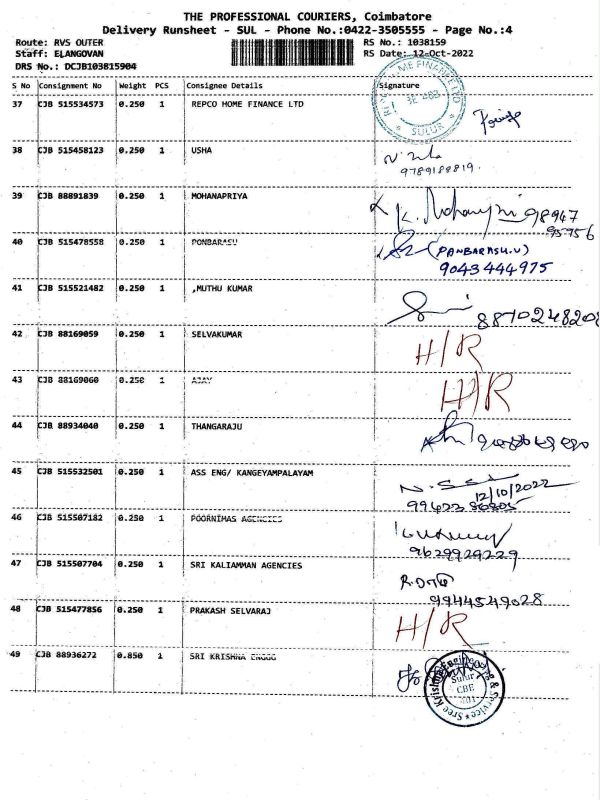 THE PROFESSIONAL COURIERS, Coimbatore
Delivery Runsheet - SUL - Phone No.:0422-3505555 - Page No.:4
Route: RVS OUTER RS No.: 1038159
Staff: ELANGOVAN RS Date: 12-Oct-2022
DRS No.: DCJB103815904
S No Consignment No Weight PCS Consignee Details Signature
37 CJB 515534573 0.250 1 REPCO HOME FINANCE LTD
SULUR
38 CJB 515458123 0.250 1 USHA
9789188819.
39 CJB 88891839 0.250 1 MOHANAPRIYA
K. 98947
95756
40 CJB 515478558 0.250 1 PONBARASU (PANBARASU.U)
9043444975
41 CJB 515521482 0.250 1 ,MUTHU KUMAR
8870248208
42 CJB 88169059 0.250 1 SELVAKUMAR H/R
43 CJB 88169060 0.250 1 AJAY H/R
44 CJB 88934040 0.250 1 THANGARAJU
45 CJB 515532501 0.250 1 ASS ENG/ KANGEYAMPALAYAM
12/10/2022
46 CJB 515507182 0.250 1 POORNIMAS AGENCIES
9629929229
47 CJB 515507704 0.250 1 SRI KALIAMMAN AGENCIES
9944549028
48 CJB 515477856 0.250 1 PRAKASH SELVARAJ H/R
49 CJB 88936272 0.850 1 SRI KRISHNA ENGGG
Sulur
CBE